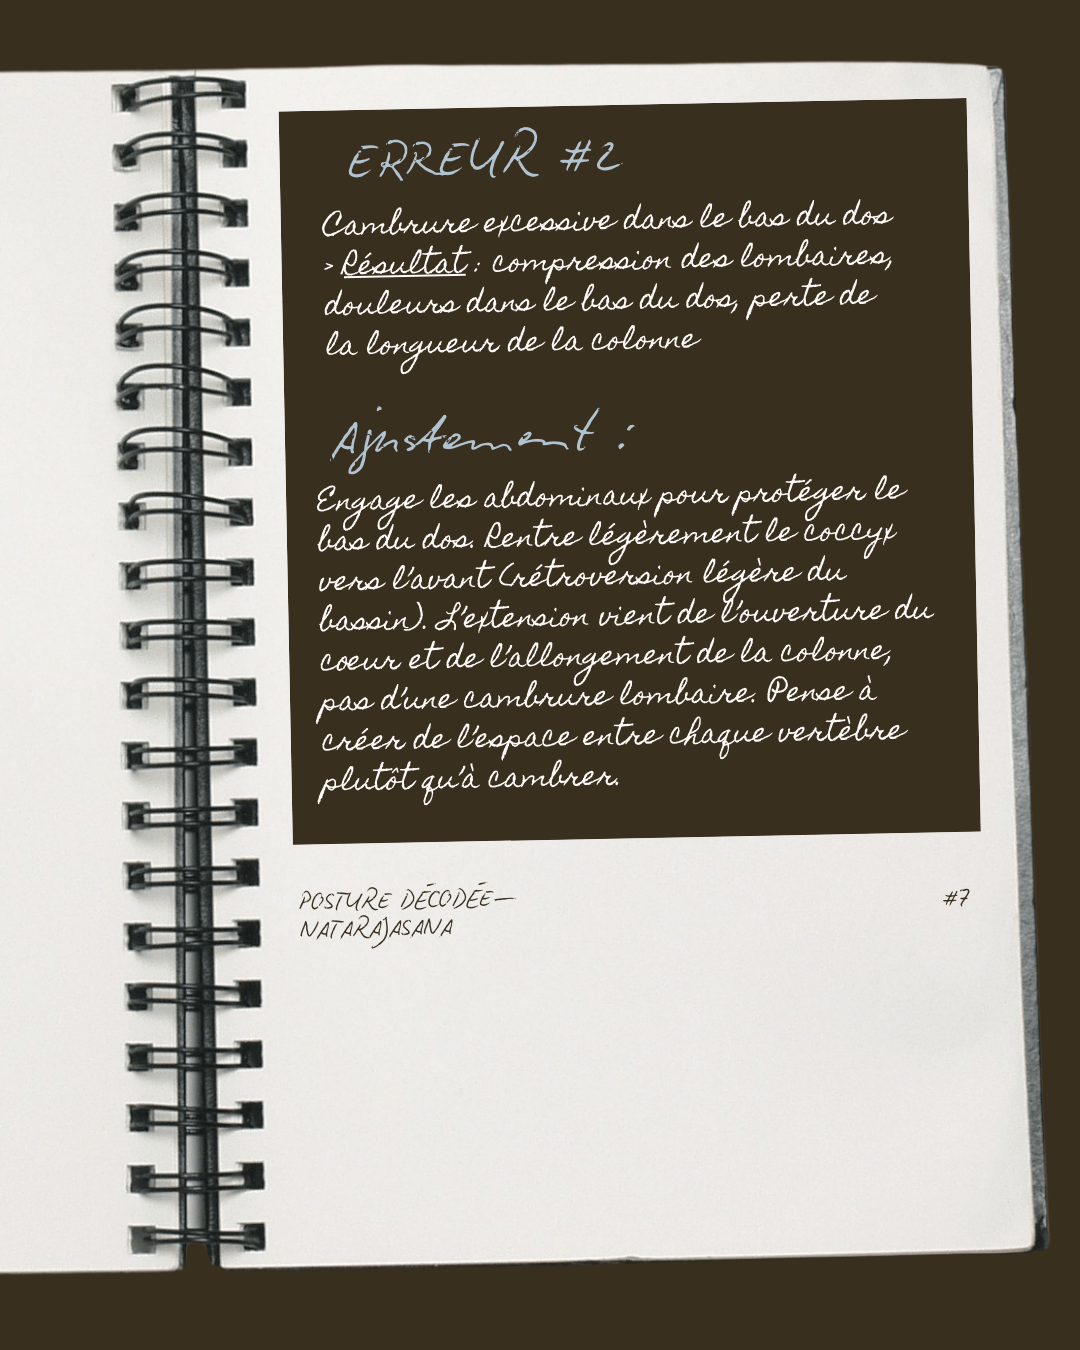 ERREUR #2
Cambrure excessive dans le bas du dos
> Résultat : compression des lombaires,
douleurs dans le bas du dos, perte de
la longueur de la colonne
Ajustement :
Engage les abdominaux pour protéger le
bas du dos. Rentre légèrement le coccyx
vers l'avant (rétroversion légère du
bassin). L'extension vient de l'ouverture du
cœur et de l'allongement de la colonne,
pas d'une cambrure lombaire. Pense à
créer de l'espace entre chaque vertèbre
plutôt qu'à cambrer.
POSTURE DÉCODÉE—
NATARAJASANA
#7